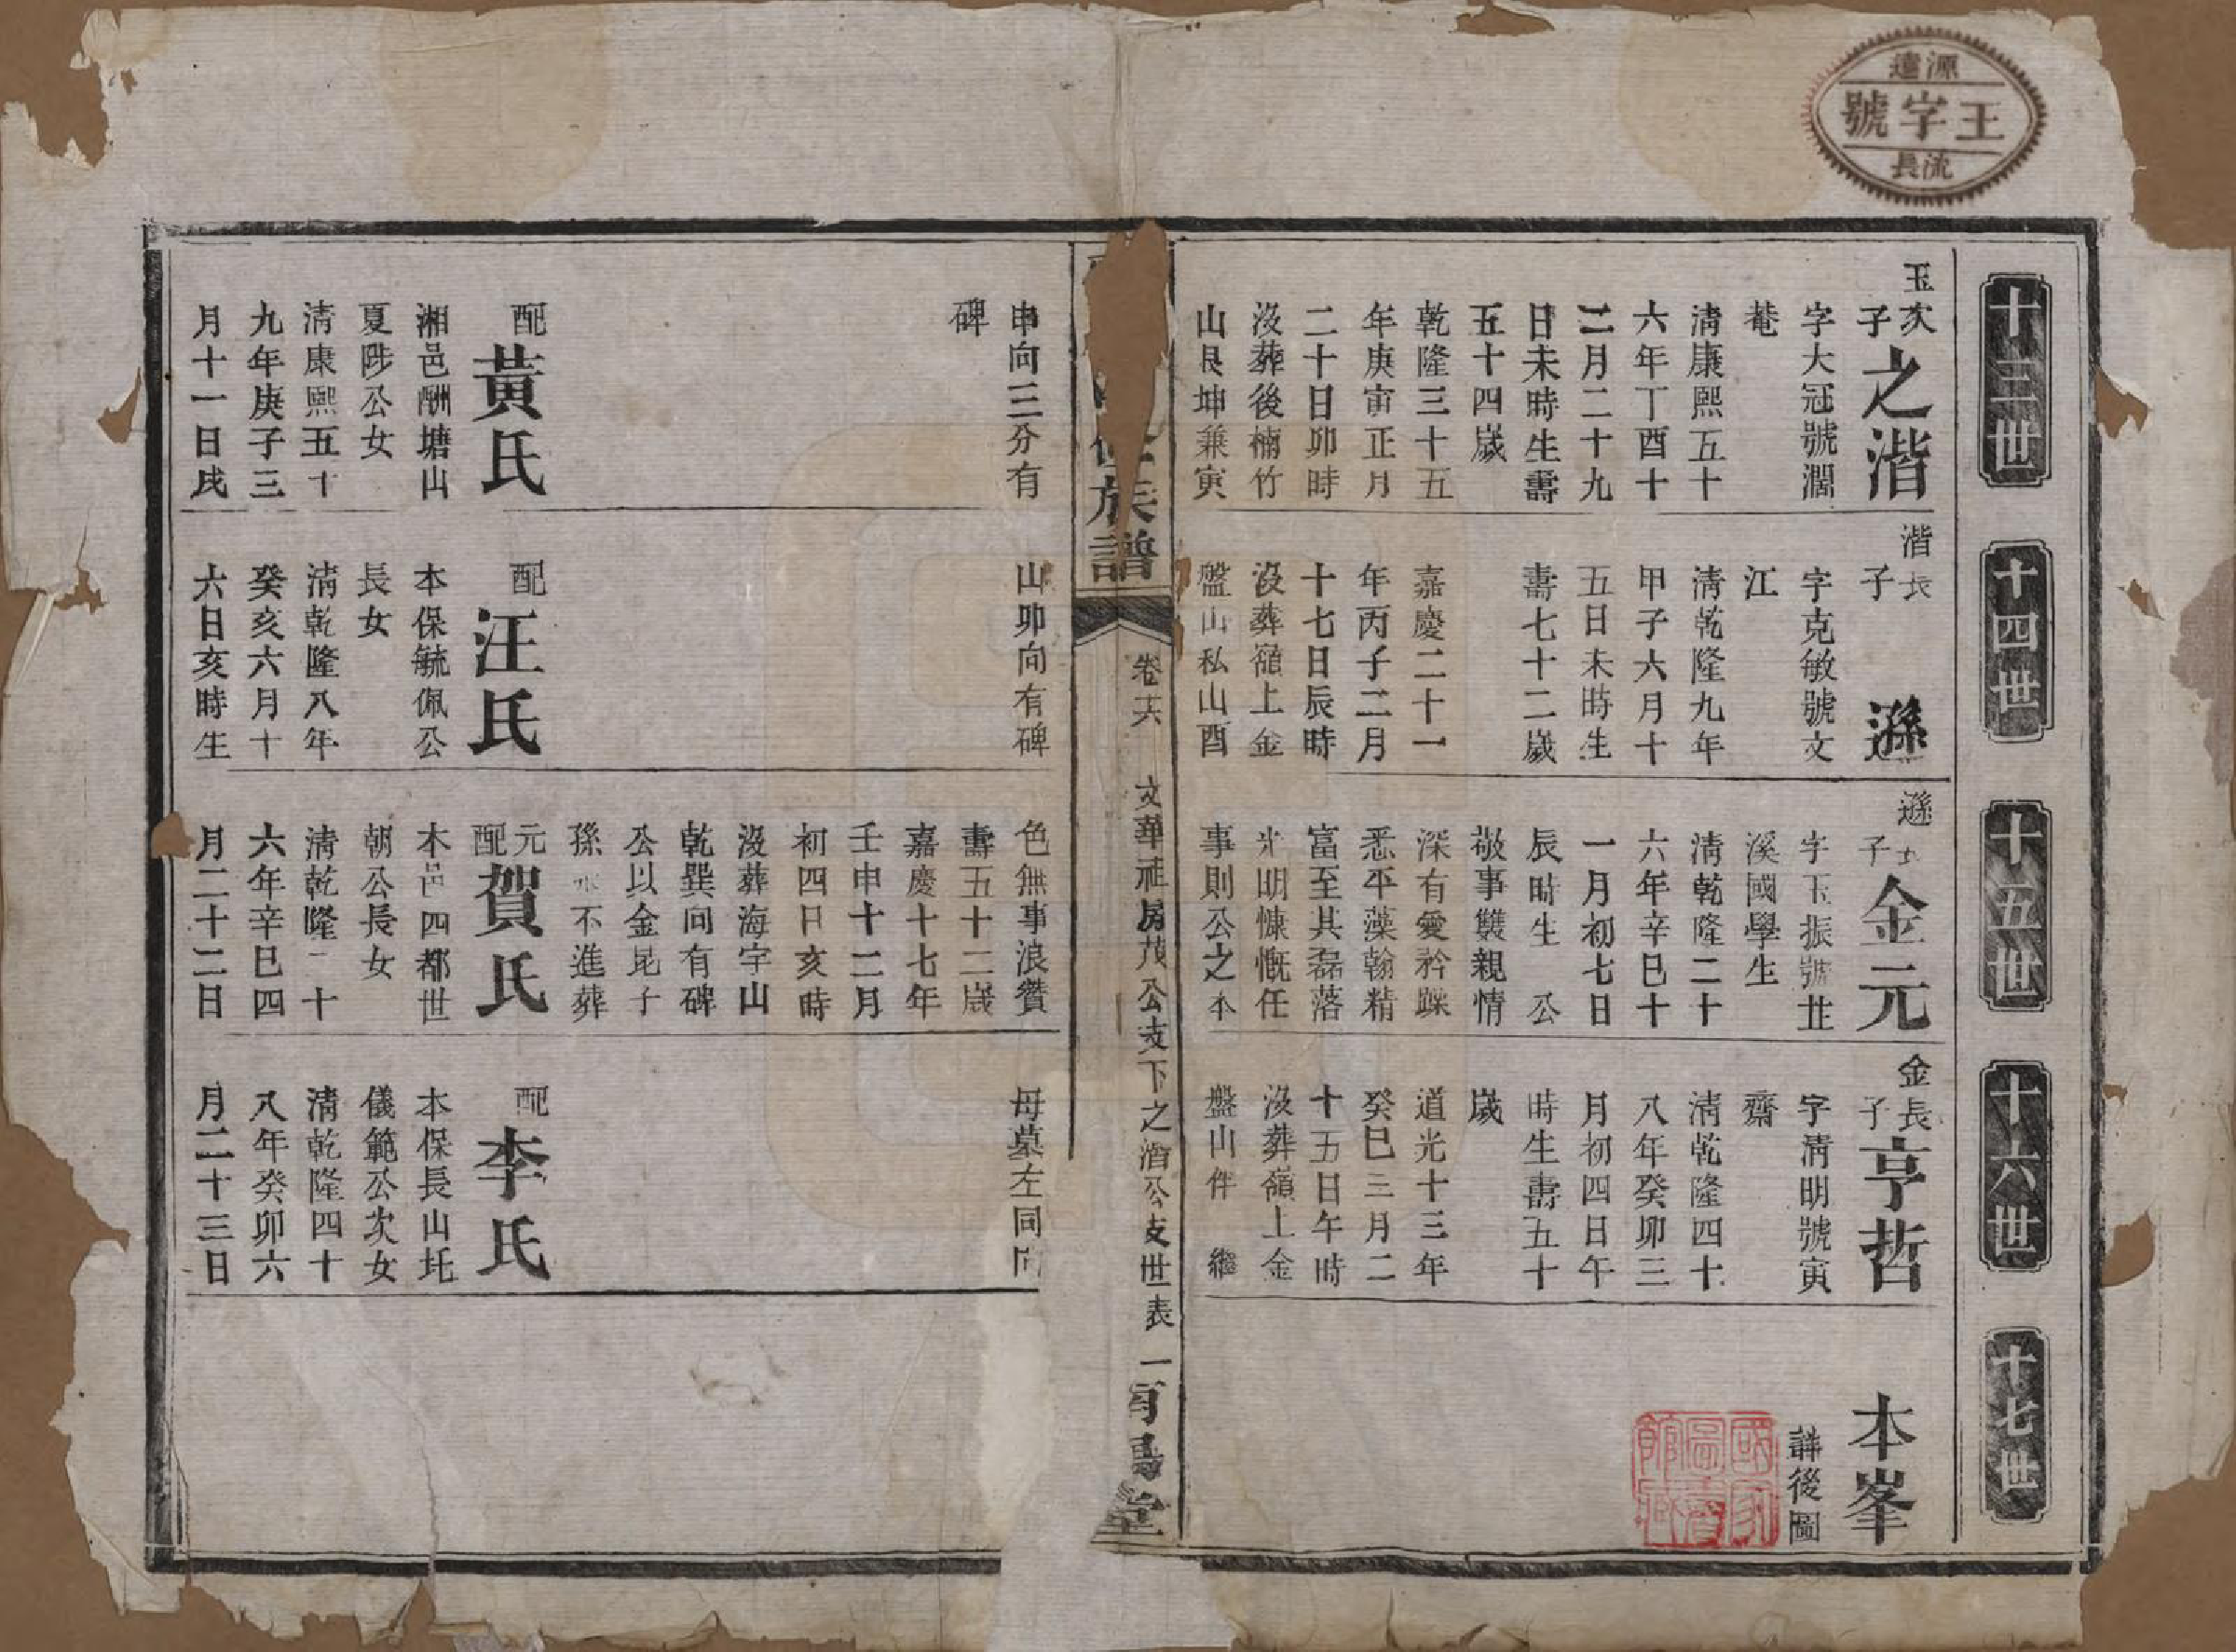 源遠
王字號
流長
十三世
十四世
十五世
十六世
十七世
玉次子之湝
字大冠號濶
菴
清康熙五十
六年丁酉十
二月二十九
日未時生壽
五十四歲
乾隆三十五
年庚寅正月
二十日卯時
沒葬後楠竹
山艮坤兼寅
申向三分有
碑
配黃氏
湘邑酬塘山
夏陟公女
清康熙五十
九年庚子三
月十一日戌
湝長子遜
字克敏號文
江
清乾隆九年
甲子六月十
五日未時生
壽七十二歲
嘉慶二十一
年丙子二月
十七日辰時
沒葬嶺上金
盤山私山酉
山卯向有碑
配汪氏
本保毓佩公
長女
清乾隆八年
癸亥六月十
六日亥時生
遜長子金元
字玉振號芷
溪國學生
清乾隆二十
六年辛巳十
一月初七日
辰時生 公
敬事雙親情
深有愛矜躁
悉平藻翰精
富至其磊落
光明慷慨任
事則公之本
色無事浪贊
壽五十二歲
嘉慶十七年
壬申十二月
初四日亥時
沒葬海宇山
乾巽向有碑
公以金昆子
孫 不進葬
元配賀氏
本邑四都世
朝公長女
清乾隆二十
六年辛巳四
月二十二日
金長子亨哲
字清明號寅
齋
清乾隆四十
八年癸卯三
月初四日午
時生壽五十
歲
道光十三年
癸巳三月二
十五日午時
沒葬嶺上金
盤山伴 繼
母墓左同向
配李氏
本保長山圫
儀範公次女
清乾隆四十
八年癸卯六
月二十三日
本峯
詳後圖
國家圖書館藏
修族譜
卷六 文華祖房茂公支下之湝公支世表 一
堂